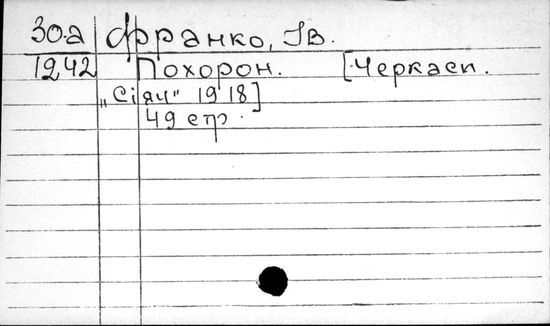 30.а Франко, Ів.
1242 Похорон. [Черкаси.
„Сіяч" 1918]
49 стр.